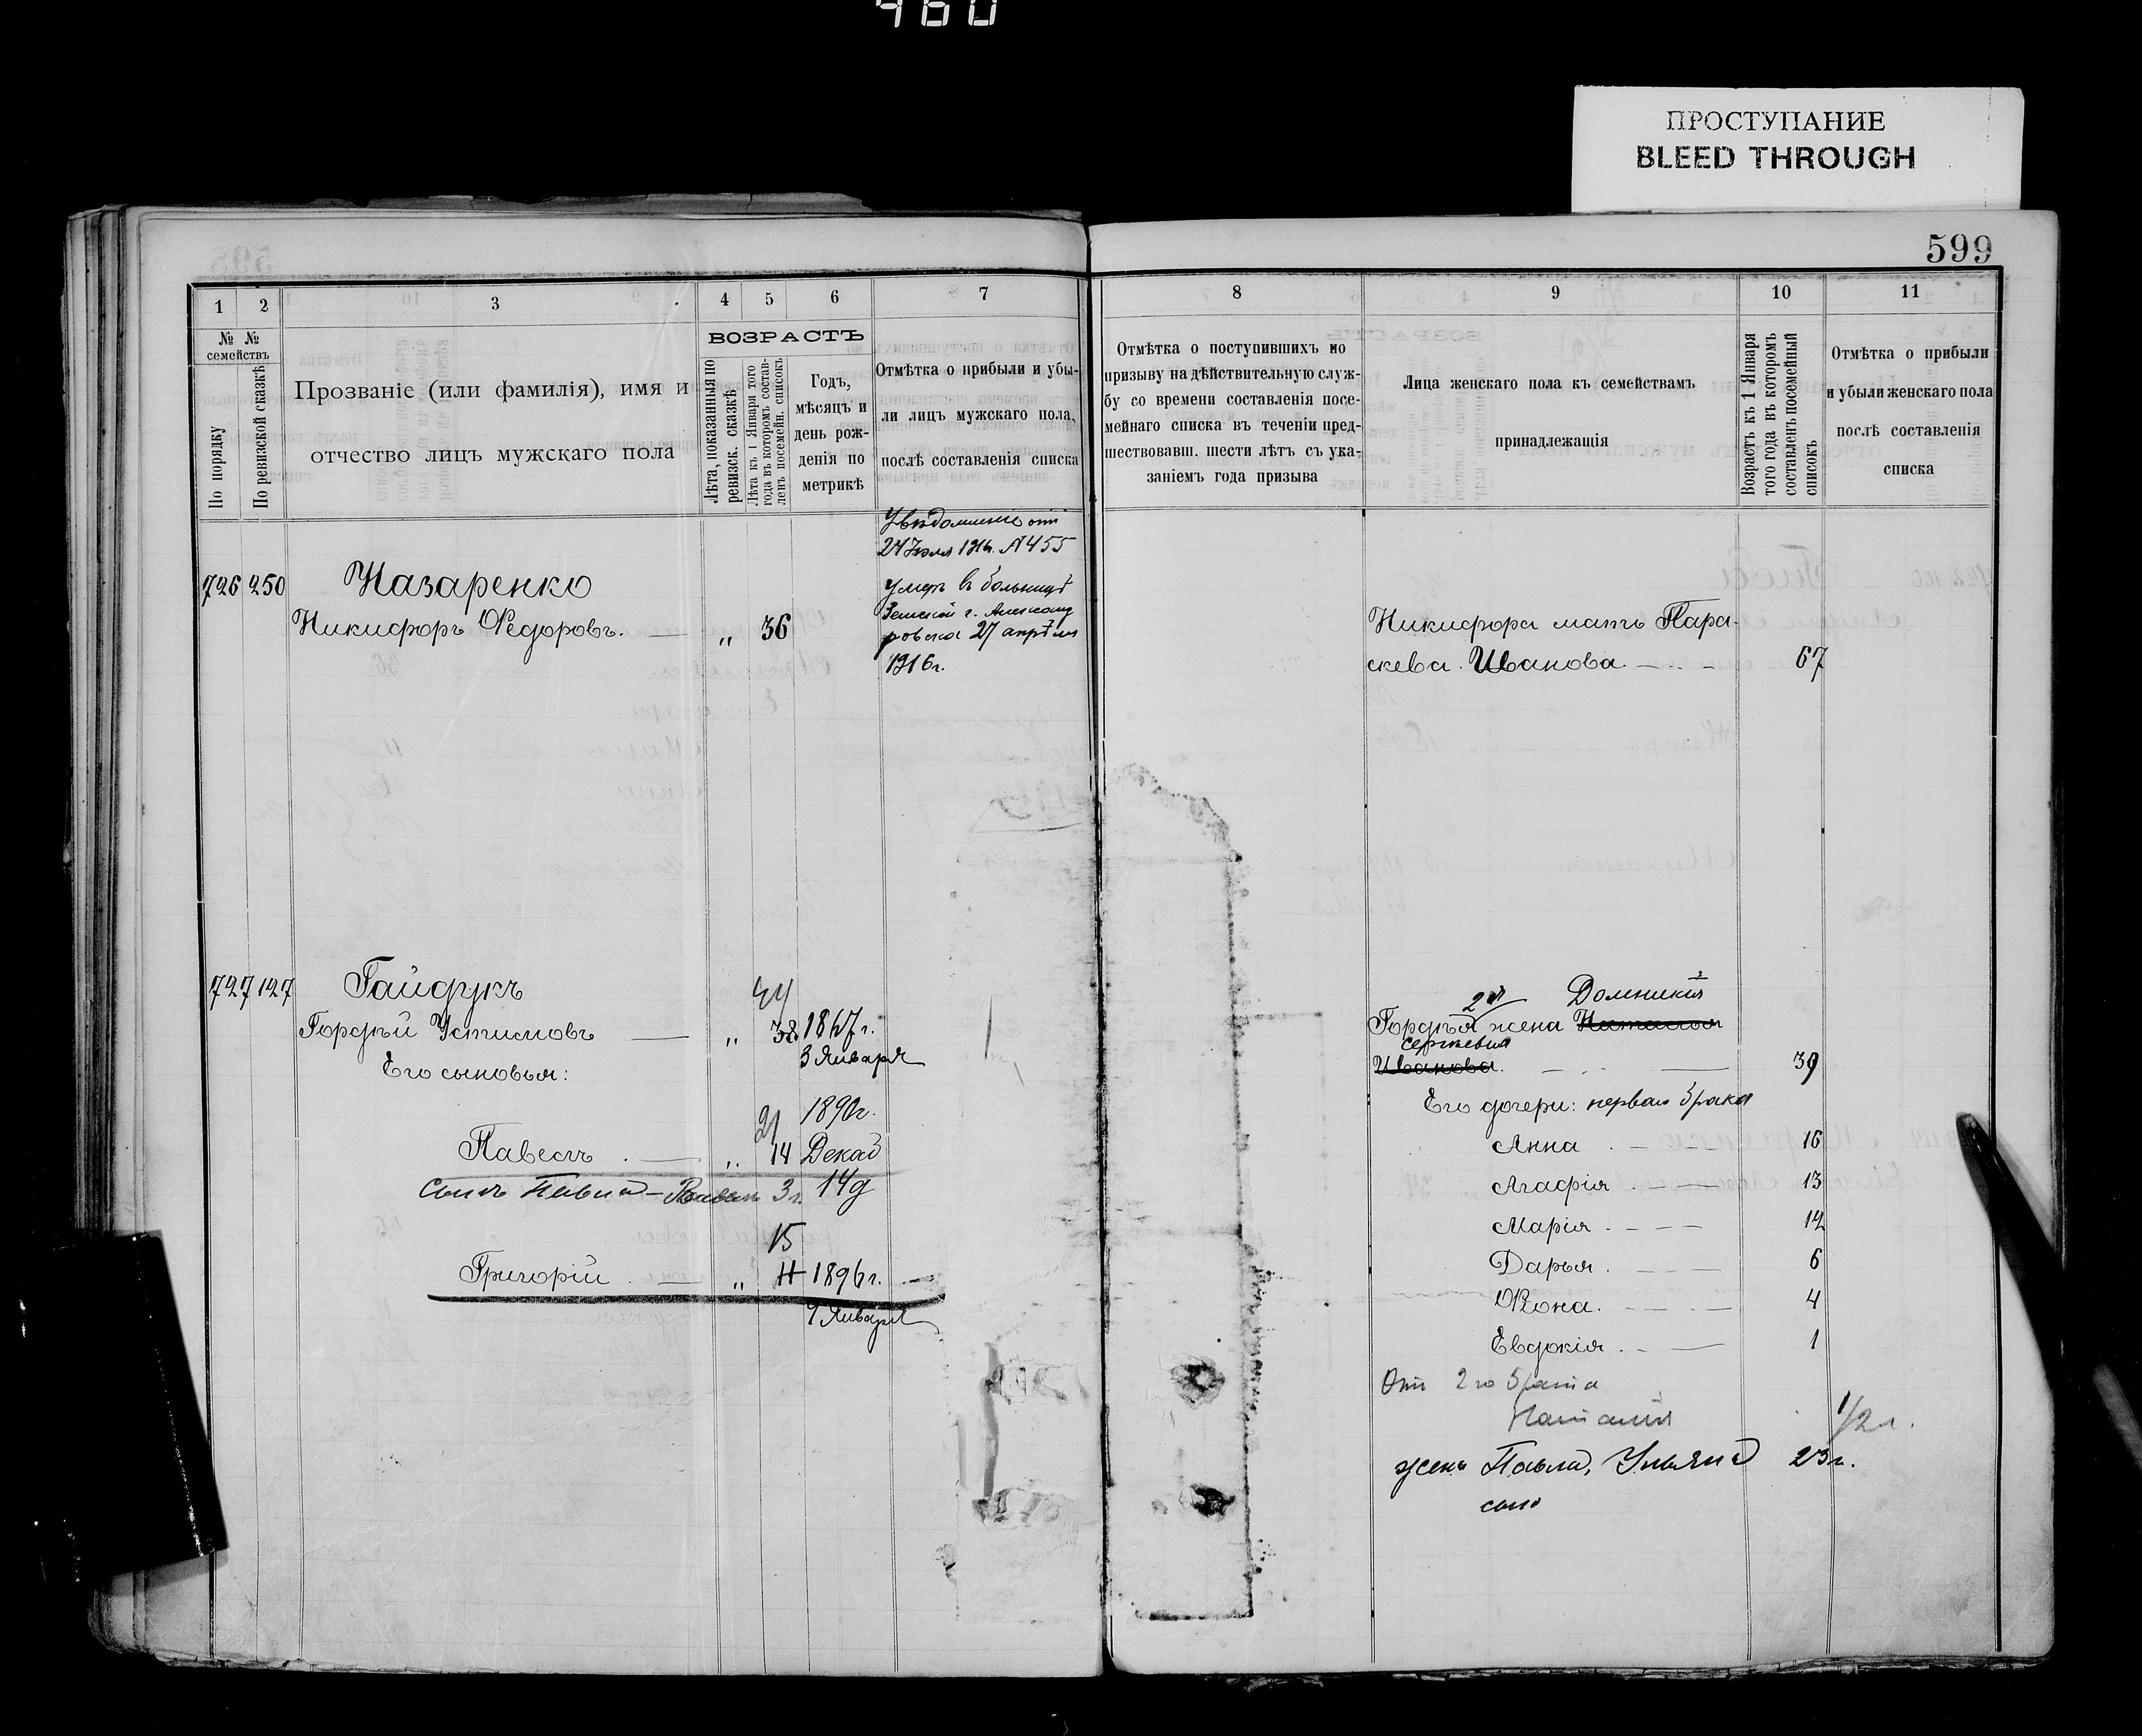 460
ПРОСТУПАНИЕ
BLEED THROUGH
599
1 2 3 4 5 6 7
№ № семействъ
По порядку
По ревизской сказкѣ
Прозваніе (или фамилія), имя и
отчество лицъ мужскаго пола
ВОЗРАСТЪ
Лѣта, показанныя по
ревизск. сказкѣ
Лѣта къ 1 Января того
года въ которомъ состав-
ленъ посемейн. списокъ
Годъ,
мѣсяцъ и
день рож-
денія по
метрикѣ
Отмѣтка о прибыли и убы-
ли лицъ мужскаго пола,
послѣ составленія списка
8 9 10 11
Отмѣтка о поступившихъ по
призыву на дѣйствительную служ-
бу со времени составленія посе-
мейнаго списка въ теченіи пред-
шествовавш. шести лѣтъ съ ука-
заніемъ года призыва
Лица женскаго пола къ семействамъ
принадлежащія
Возрастъ къ 1 Января
того года въ которомъ
составленъ посемейный
списокъ
Отмѣтка о прибыли
и убыли женскаго пола
послѣ составленія
списка
726 250 Назаренко
Никифоръ Ѳедоровъ. — „ 36
24 Іюля 1916. № 455
Умеръ в больницѣ
Земской г. Александ
ровска 27 апрѣля
1916г.
Никифора мать Пара-
скева Иванова — 67
727 127 Гайдукъ
44
Гордѣй Устимовъ — „ 38 1867г.
3 Января
Его сыновья:
21 1890г.
Павелъ — „ 14 Декаб
сынъ Павла – 3г. 14д
15
Григорій — „ 11 1896г.
9 Января
2я Домникія
Гордѣя жена Наталія
Сергѣевна
Иванова. — 39
Его дочери: перваго брака
Анна — 16
Агафія — 13
Марія — 12
Дарья — 6
Ѳеона — 4
Евдокія — 1
Отъ 2го брака
Наталія 1/2 г.
жена Павла, Ульяна 23г.